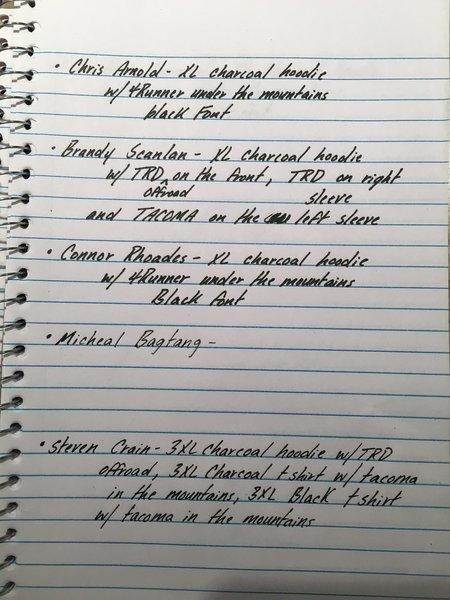 • Chris Arnold - XL charcoal hoodie
w/ 4Runner under the mountains
black Font
• Brandy Scanlan - XL charcoal hoodie
w/ TRD ^ on the front, TRD on right
offroad sleeve
and TACOMA on the left sleeve
• Connor Rhoades - XL charcoal hoodie
w/ 4Runner under the mountains
Black font
• Micheal Bagtang -
• Steven Crain - 3XL charcoal hoodie w/ TRD
offroad, 3XL Charcoal t shirt w/ tacoma
in the mountains, 3XL Black t shirt
w/ tacoma in the mountains